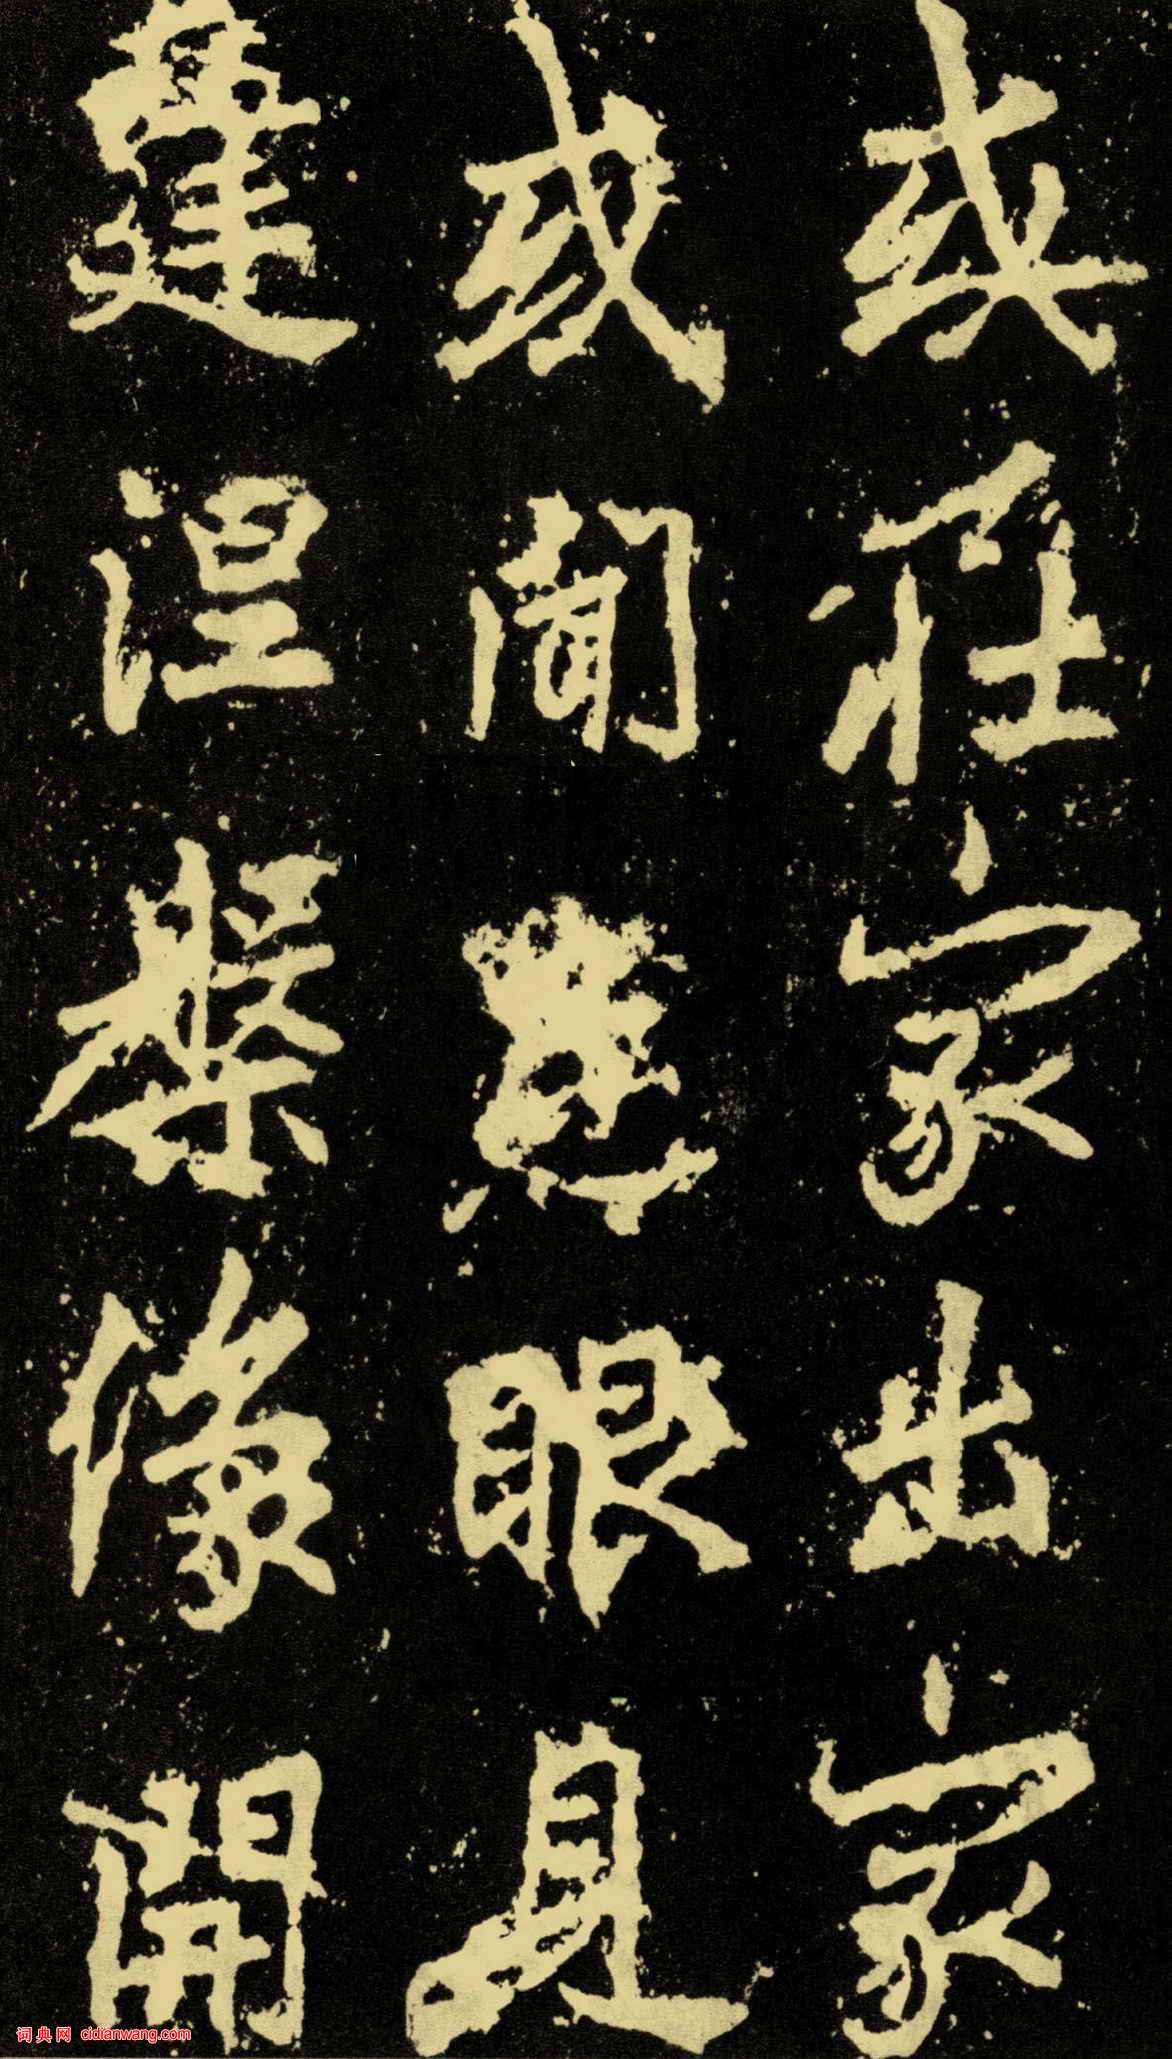 或在家出家
或聞眼見
建涅槃像開
词典网 cidianwang.com